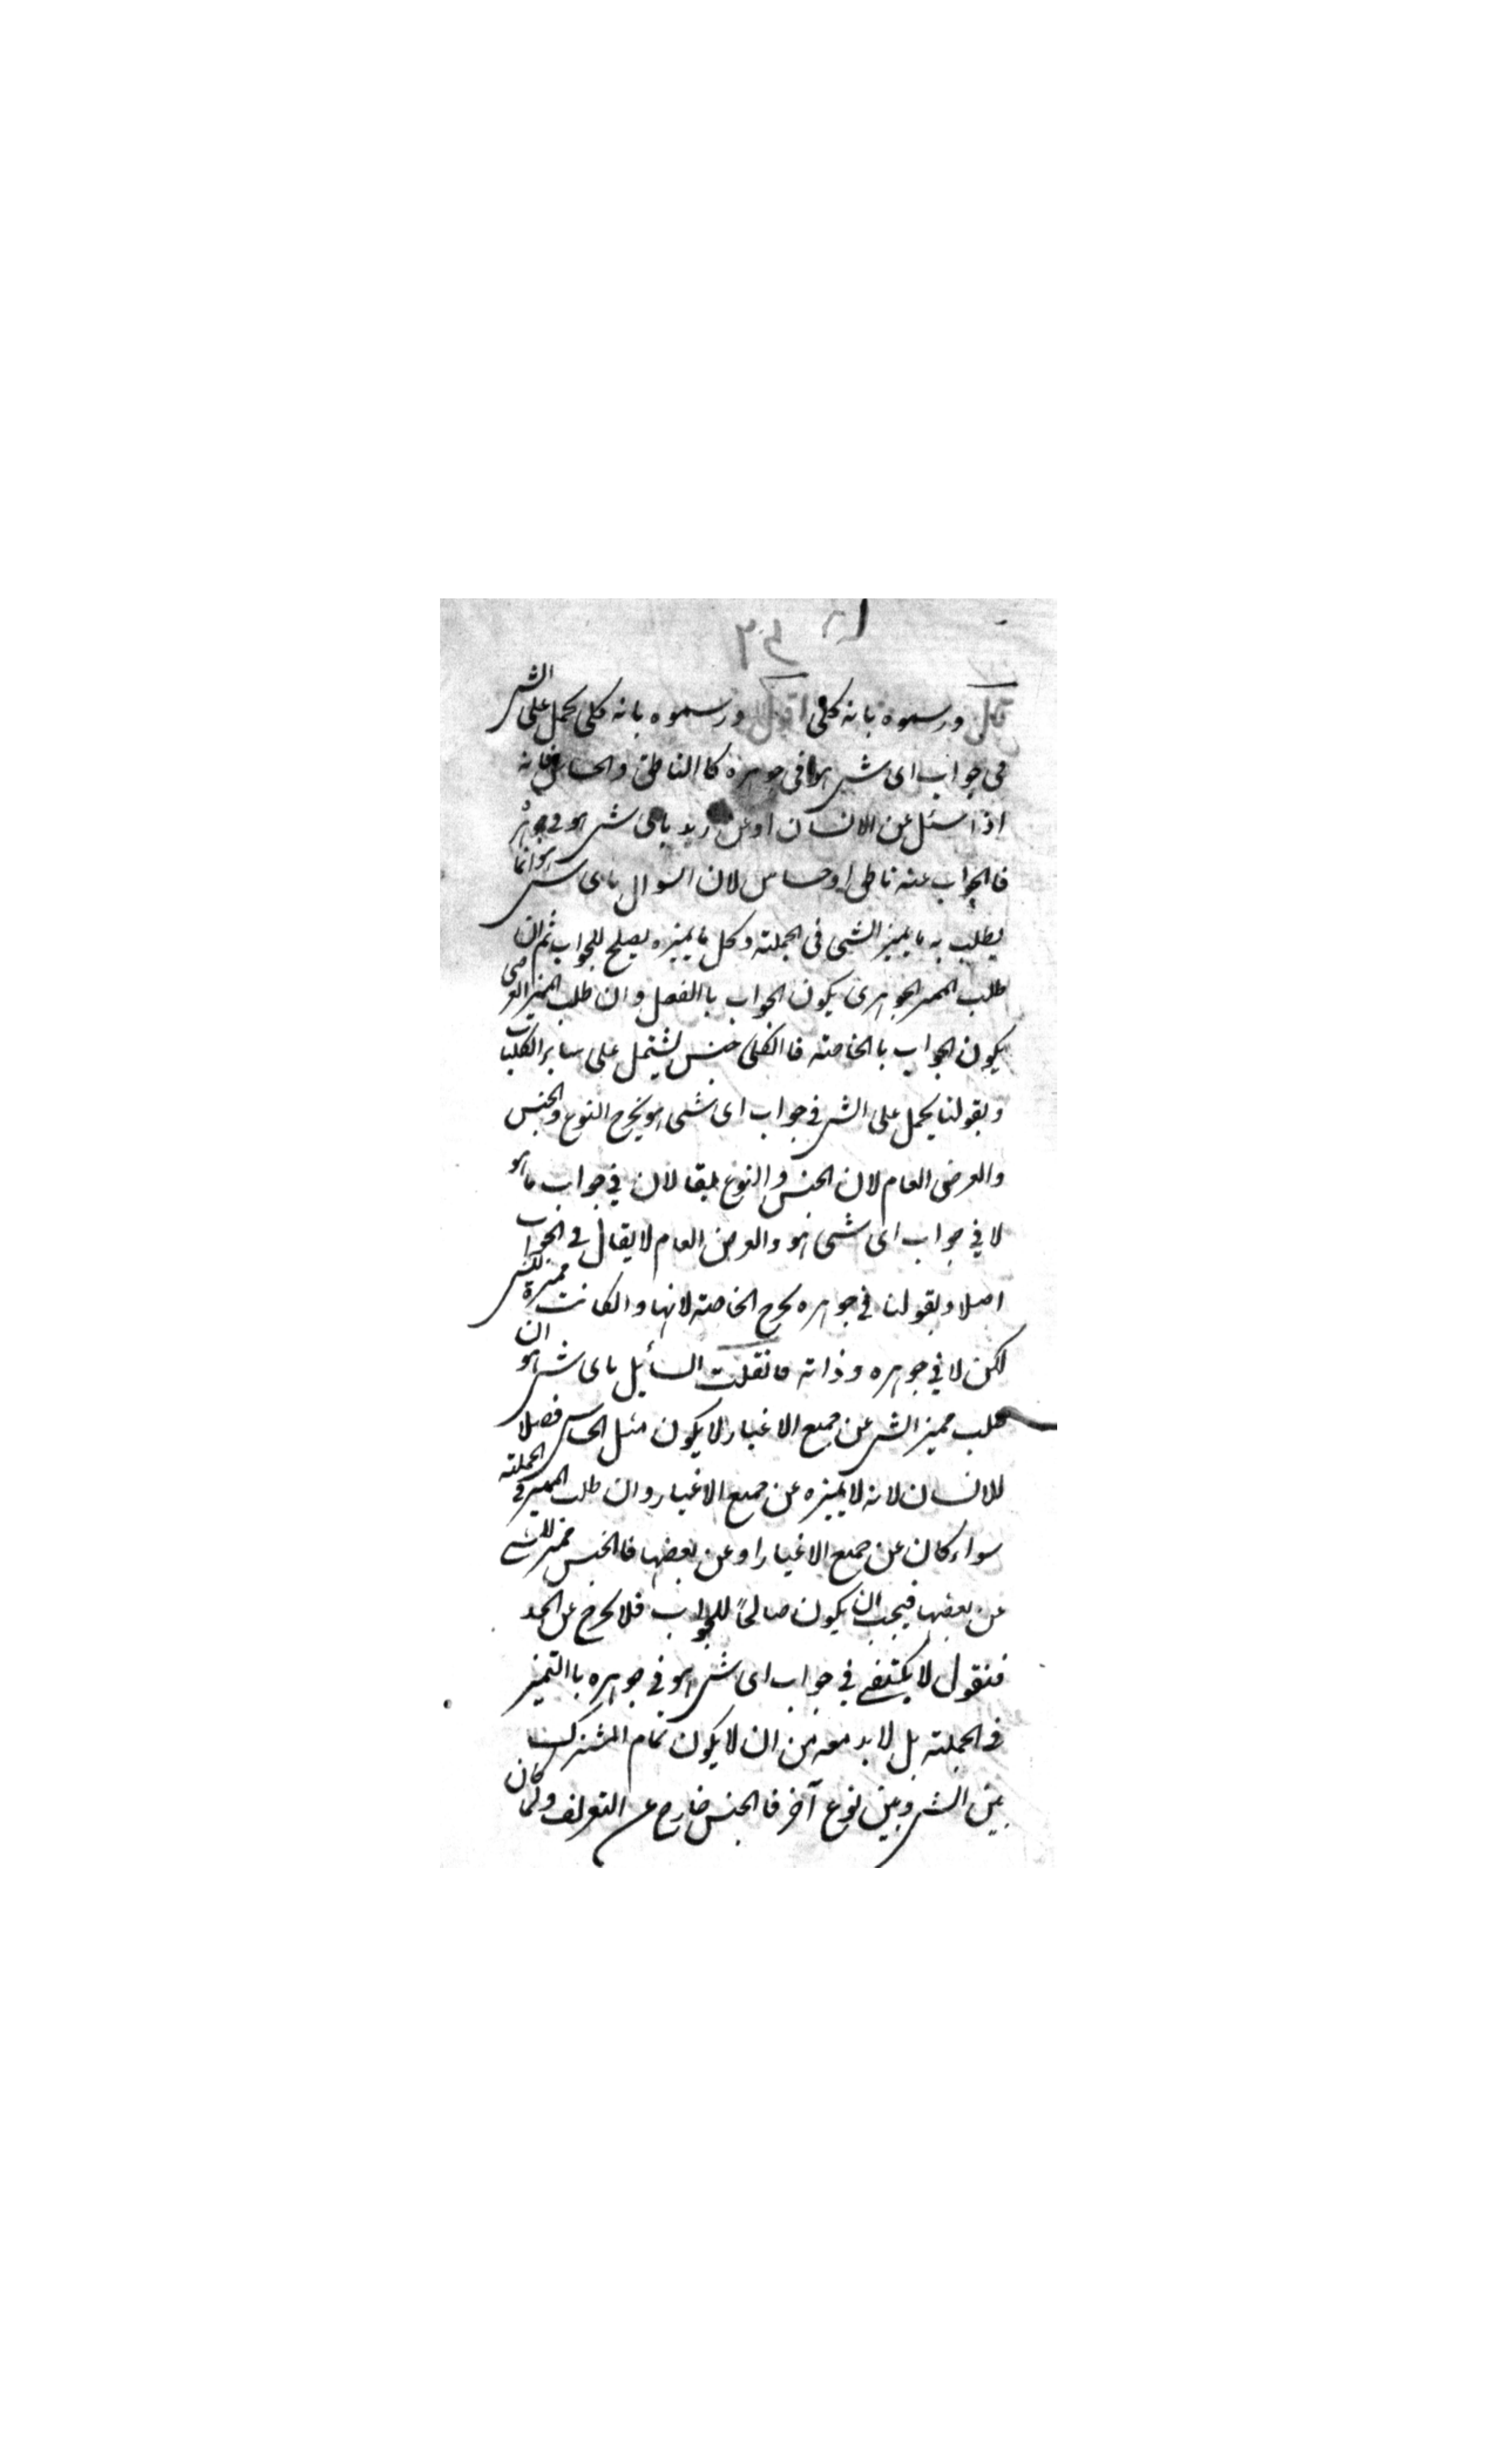 ٣٤
قال ورسموه بانه كلي اقول ورسموه بانه كلى يحمل على الشئ
فى جواب اى شئ هو فى جوهره كاالناطق والحساس فانه
اذا سئل عن الانسان او عن زيد باى شئ هو فى جوهره
فالجواب عنه ناطق او حساس لان السوال باى شئ هو انما
يطلب به ما يميز الشئ فى الجملته وكل ما يميزه يصلح للجواب ثم ان
طلب المميز الجوهرى يكون الجواب باالفصل وان طلب المميز العرضى
يكون الجواب باالخاصته فاالكلى جنس يشتمل على سائر الكليات
وبقولنا يحمل على الشئ فى جواب اى شئ هو يخرج النوع والجنس
والعرض العام لان الجنس والنوع يقالان فى جواب ما هو
لا فى جواب اى شئ هو والعرض العام لا يقال فى الجواب
اصلا وبقولنا فى جوهره يخرج الخاصته لانها والكانت مميزة للشئ
لكن لا فى جوهره وذاته فانقلت السائيل باى شئ هو ان
طلب مميز الشئ عن جميع الاغيار لا يكون مثل الحاس فصلا
للانسان لانه لا يميزه عن جميع الاغيار وان طلب المميز فى الجملته
سواء كان عن جميع الاغيار او عن بعضها فاالجنس مميز للشئ
عن بعضها فيجب ان يكون صالحاً للجواب فلا يخرج عن الحد
فنقول لا يكتفى فى جواب اى شئ هو فى جوهره باالتميز
فى الجملته بل لا بد معه من ان لا يكون تمام المشترك
بين الشئ وبين نوع آخر فاالجنس خارج عن التعريف ولما كان